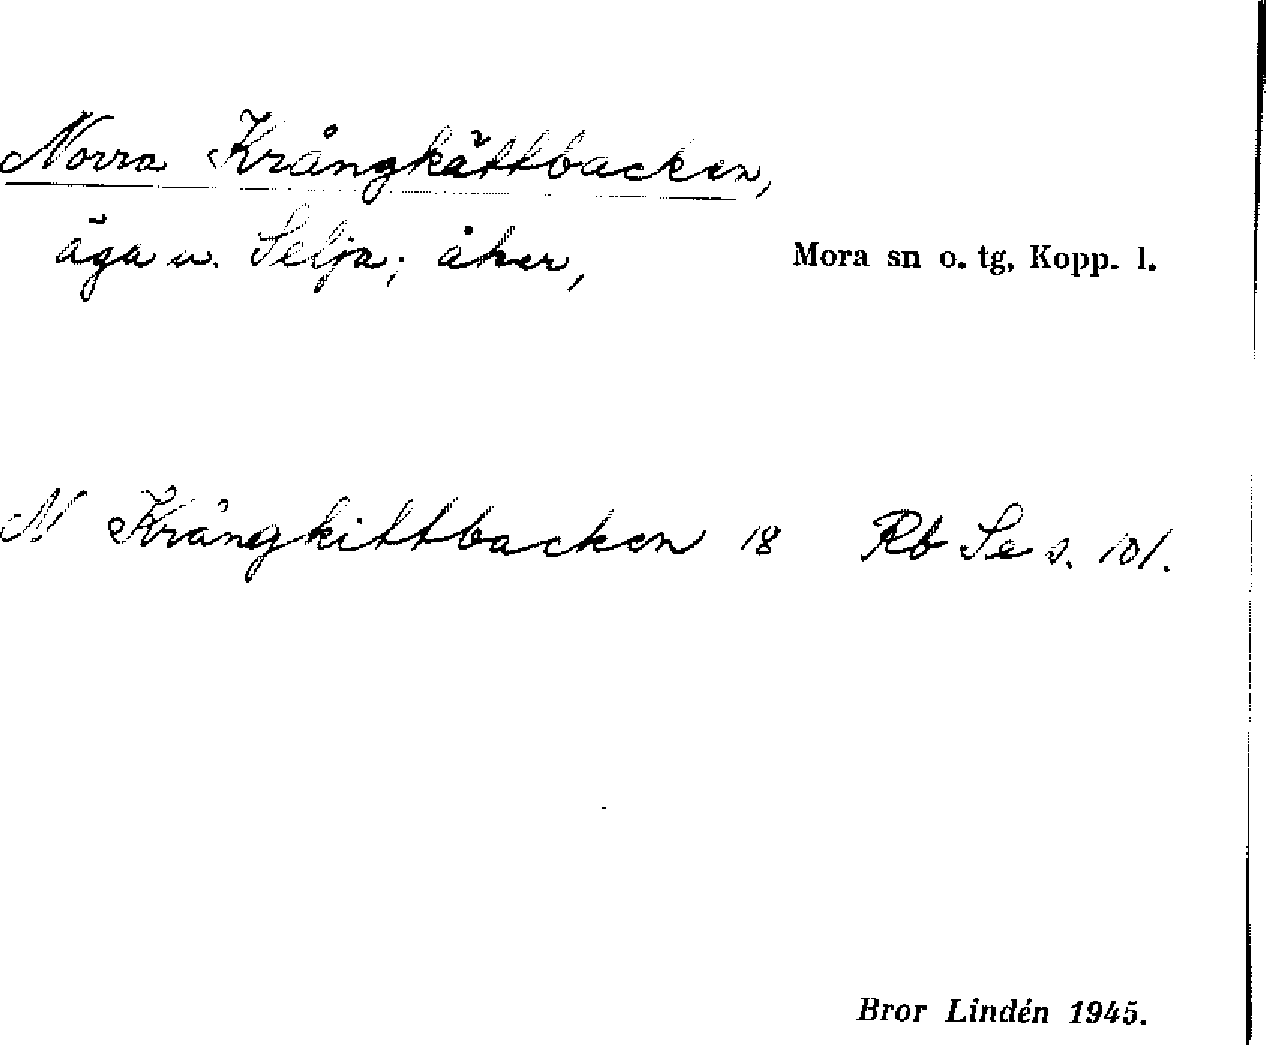 Norra Krångkättbacken,
äga u. Selja; åker, Mora sn o. tg, Kopp. l.
N Krångkittbacken 18 Rb Se s. 101.
Bror Lindén 1945.